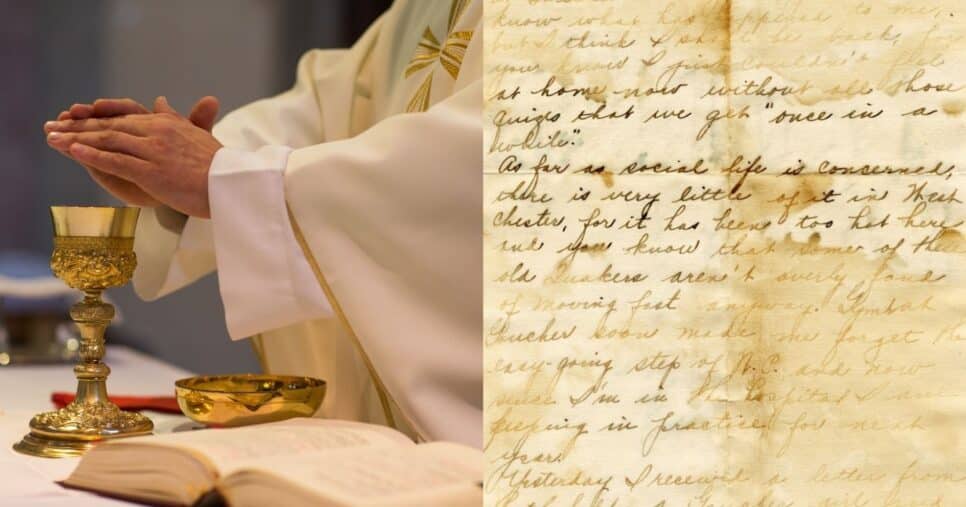 know what has happened to me,
but I think I shall be back, for
you know I just couldn't feel
at home now without all those
quizes that we get "once in a
while".
As far as social life is concerned,
there is very little of it in West
Chester, for it has been too hot here
and you know that some of the
old Quakers aren't overly fond
of moving fast anyway.
Teacher soon made me forget the
easy-going step of and now
since I'm in the hospital I am
keeping in practice for next
year.
Yesterday I received a letter from